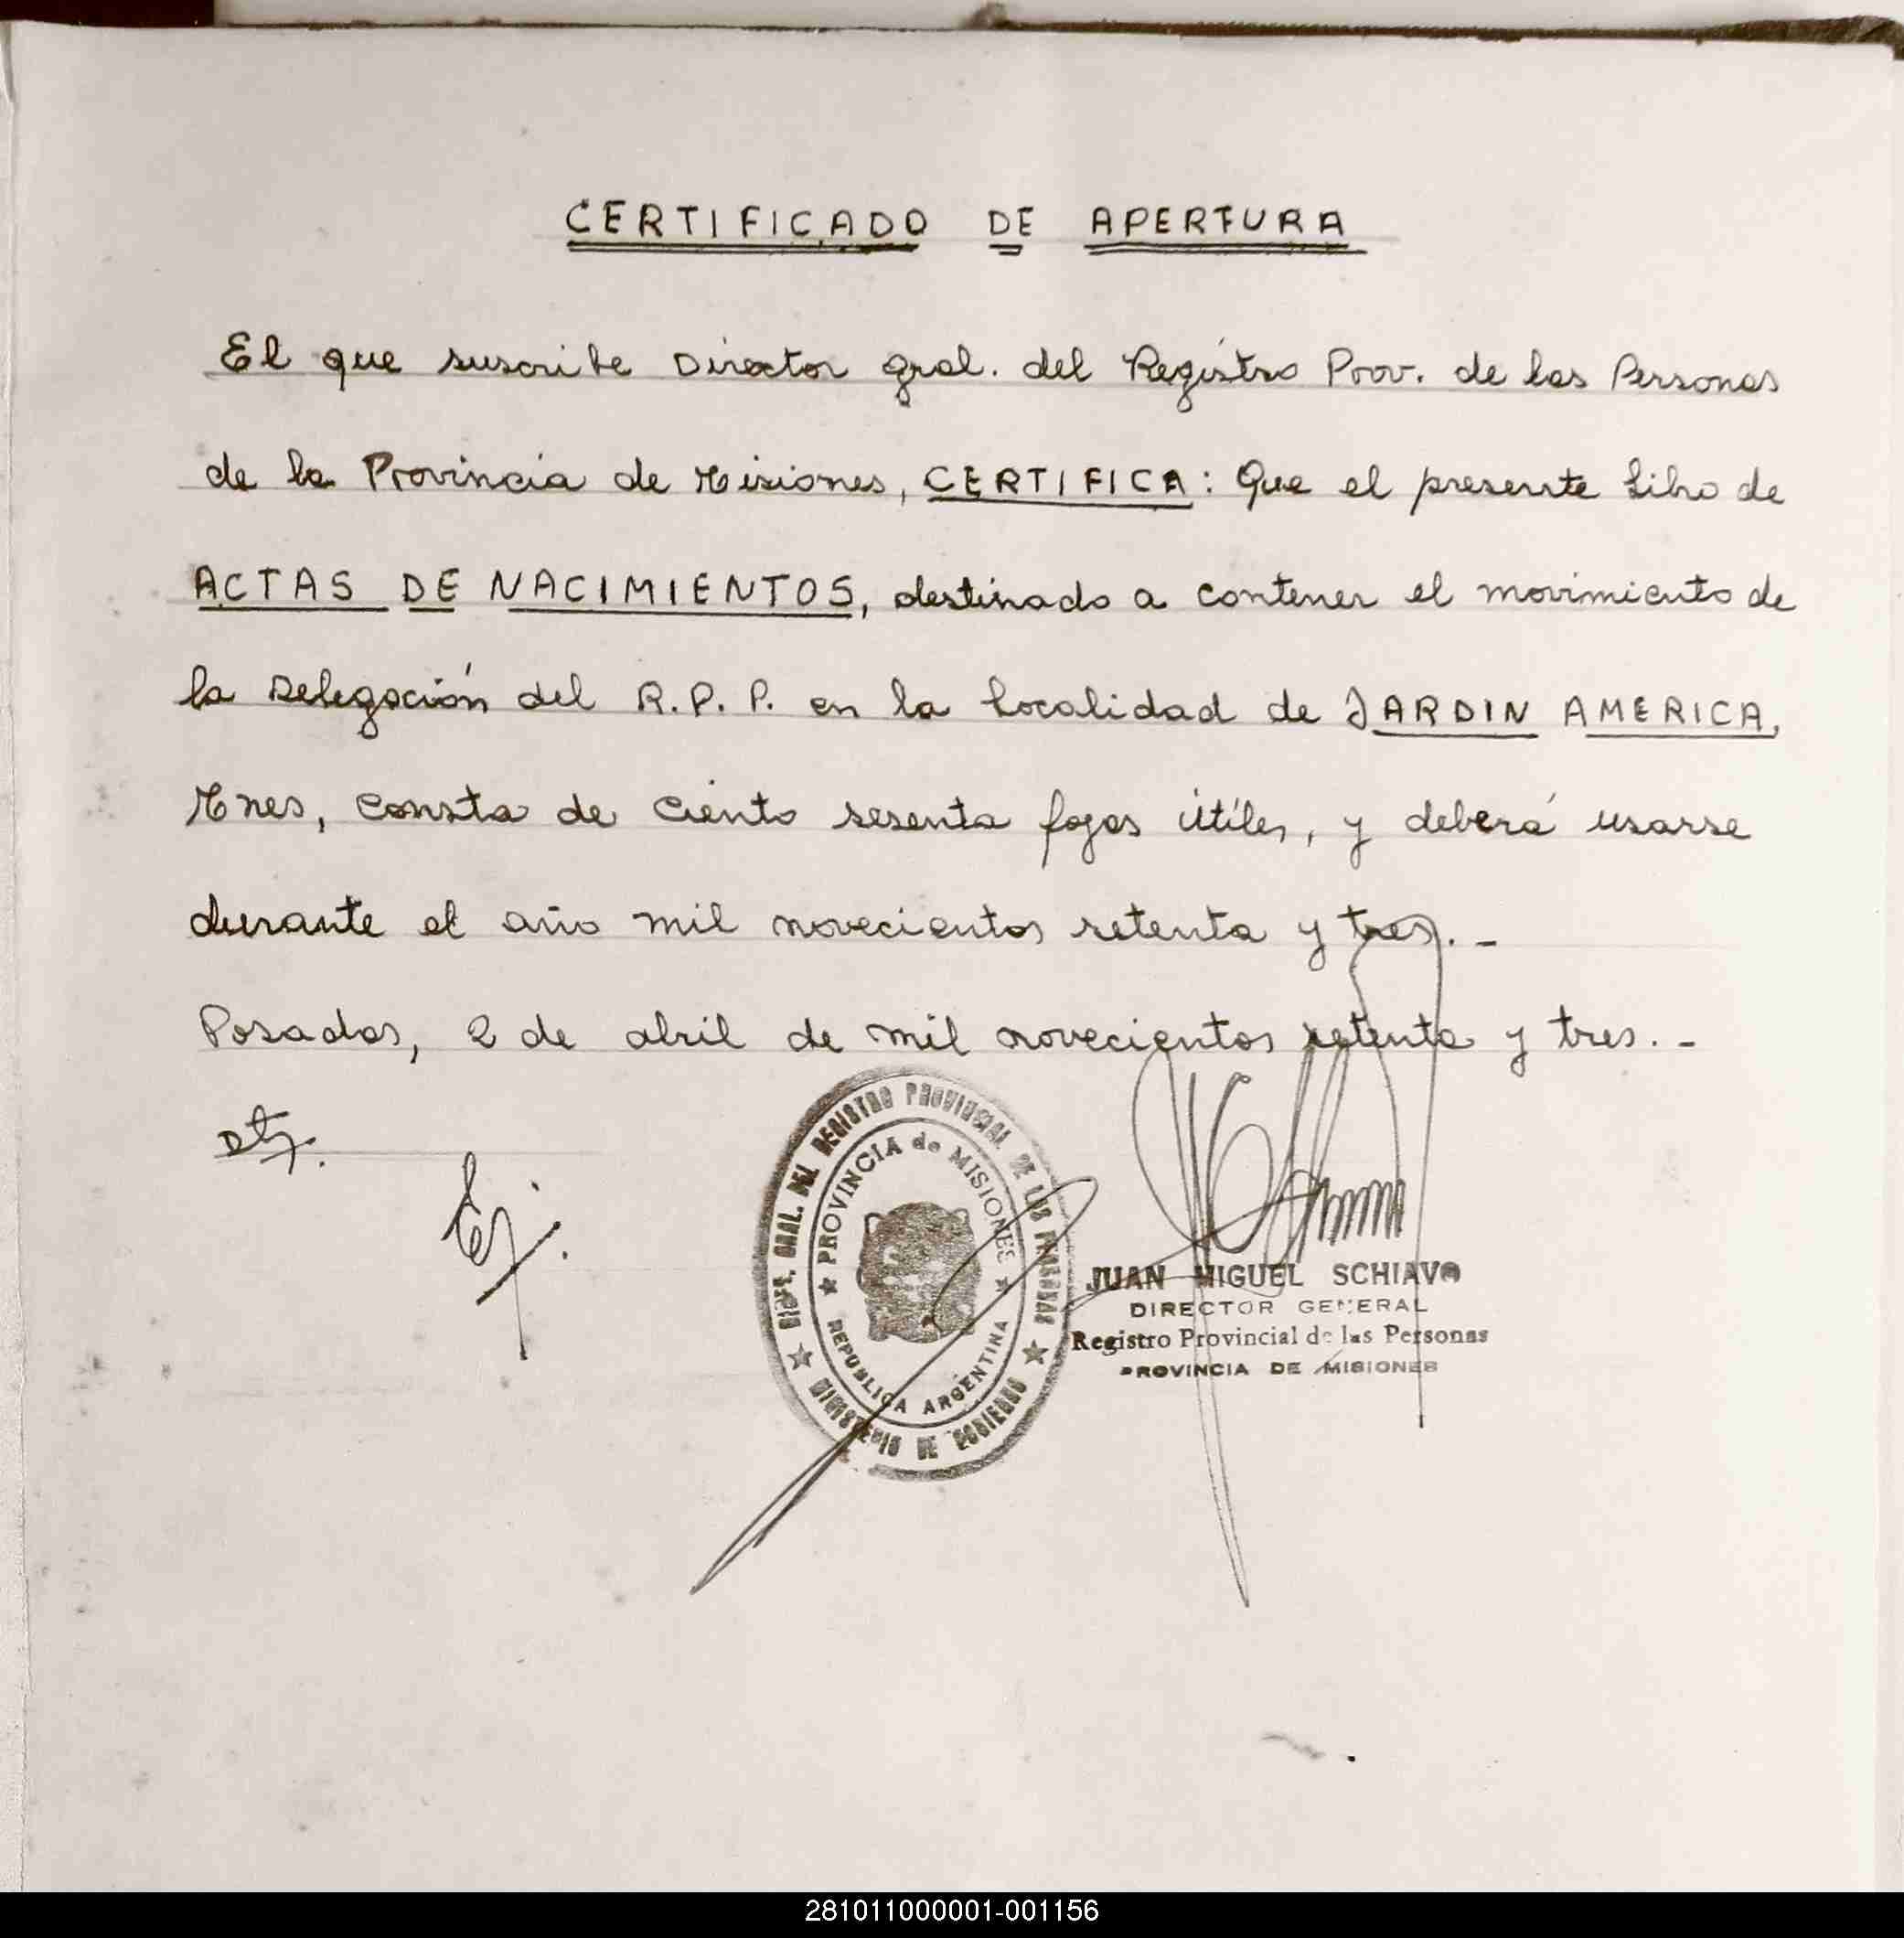 CERTIFICADO DE APERTURA
El que suscribe Director gral. del Registro Prov. de las Personas
de la Provincia de Misiones, CERTIFICA: Que el presente Libro de
ACTAS DE NACIMIENTOS, destinado a contener el movimiento de
la Delegación del R.P.P. en la Localidad de JARDIN AMERICA,
Mnes, consta de ciento sesenta fojas útiles, y deberá usarse
durante el año mil novecientos setenta y tres.-
Posadas, 2 de abril de mil novecientos setenta y tres.-
DIREC. GRAL. DEL REGISTRO PROVINCIAL DE LAS PERSONAS
PROVINCIA de MISIONES
REPUBLICA ARGENTINA
MINISTERIO DE GOBIERNO
JUAN MIGUEL SCHIAVO
DIRECTOR GENERAL
Registro Provincial de las Personas
PROVINCIA DE MISIONES
281011000001-001156